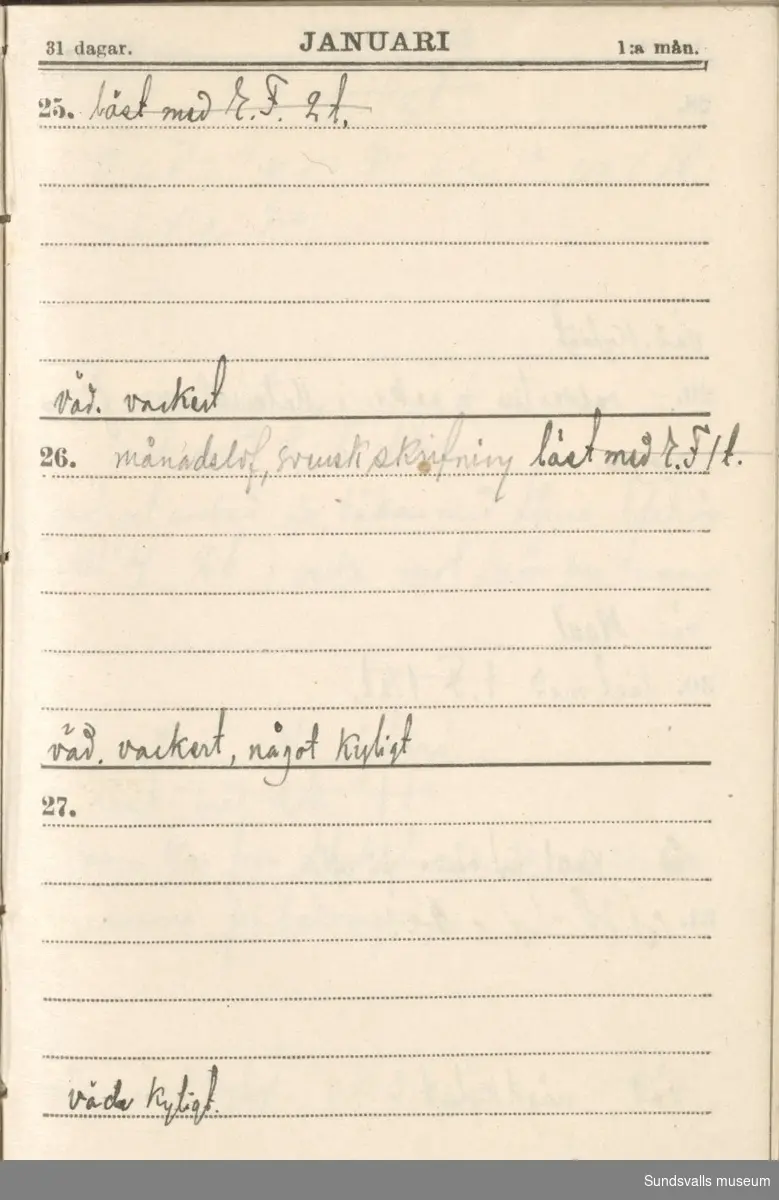 31 dagar. JANUARI 1:a mån.
25. läst med E. F. 2 t.
väd. vackert
26. månadslof, svensk skrifning läst med E. F 1 t.
väd. vackert, något kyligt
27.
väder kyligt.
Sundsvalls museum